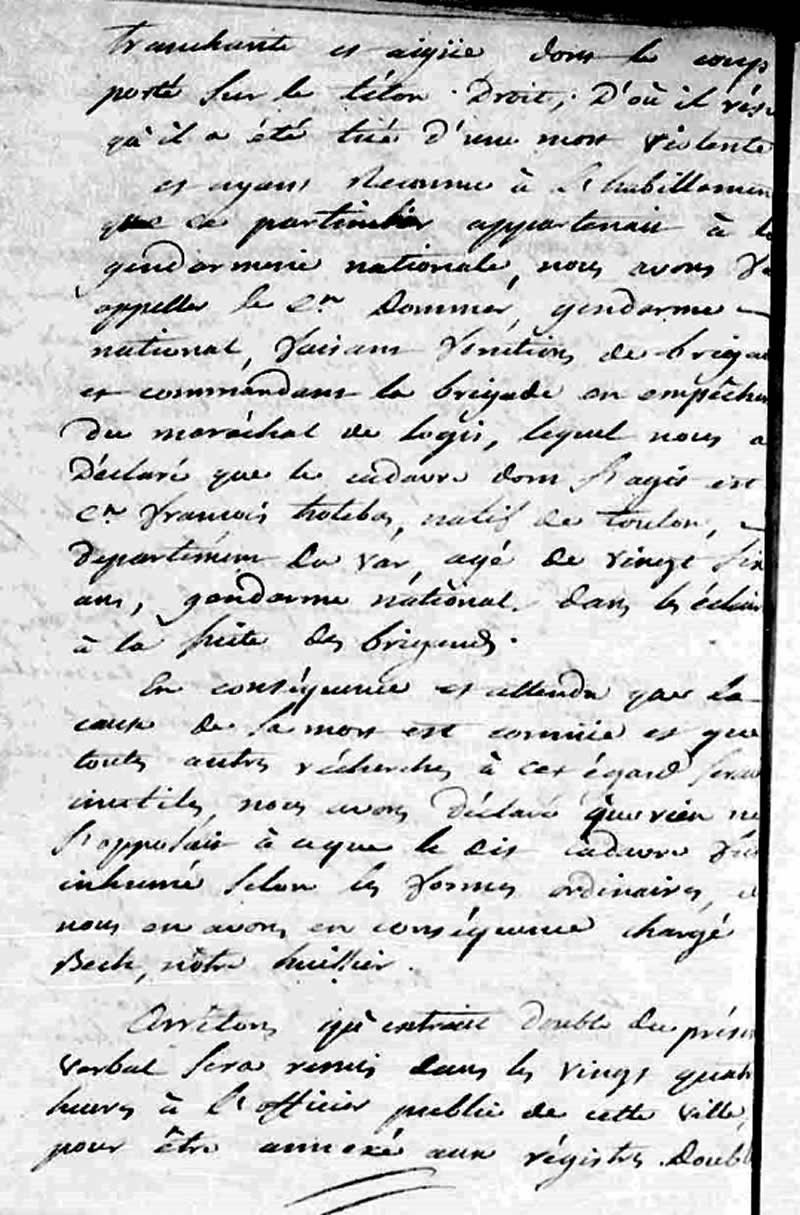 tranchante et aigüe dont le coup
porté sur le téton Droit; D'où il rés
qu'il a été tué d'une mort violente
et ayant Reconnu à l'habillemen
que ce particulier appartenait à la
gendarmerie nationale, nous avons fa
appeller le Cen Dommer, gendarme —
national, faisant fonctions de brigad
et commandant la brigade en empêchem
du maréchal de logis, lequel nous a
Déclaré que le cadavre dont s'agit est
Cen françois, natif de toulon, —
département du var, agé de vingt six
ans, gendarme national dans les éclair
à la suite des brigands.
En conséquence et attendu que la
cause de sa mort est connüe et que
toutes autres récherches à cet égard serai
inutiles, nous avons Déclaré que rien ne
s'opposait à ceque le dit cadavre fut
inhumé selon les formes ordinaires, e
nous en avons en conséquence chargé
Beck, nôtre huissier.
Arrêtons qu'extrait double du prése
verbal sera remis dans les vingt quatr
heures à l'officier public de cette ville,
pour être annexé aux régistres Doubl